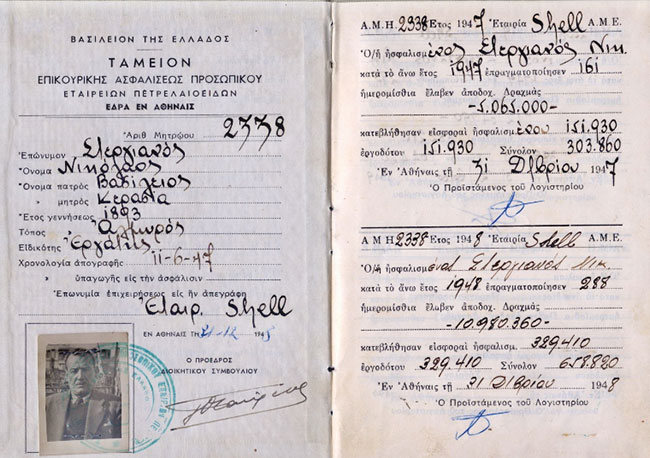 ΒΑΣΙΛΕΙΟΝ ΤΗΣ ΕΛΛΑΔΟΣ
ΤΑΜΕΙΟΝ
ΕΠΙΚΟΥΡΙΚΗΣ ΑΣΦΑΛΙΣΕΩΣ ΠΡΟΣΩΠΙΚΟΥ
ΕΤΑΙΡΕΙΩΝ ΠΕΤΡΕΛΑΙΟΕΙΔΩΝ
ΕΔΡΑ ΕΝ ΑΘΗΝΑΙΣ
Ἀριθ Μητρώου 2338
Ἐπώνυμον Στεργιανός
Ὄνομα Νικόλαος
Ὄνομα πατρός Βασίλειος
» μητρός Κερασιά
Ἔτος γεννήσεως 1893
Τόπος Ἁλμυρός
Εἰδικότης Ἐργάτης
Χρονολογία ἀπογραφῆς 11-6-47
» ὑπαγωγῆς εἰς τὴν ἀσφάλισιν
Ἐπωνυμία ἐπιχειρήσεως εἰς ἣν ἀπεγράφη
Ἑταιρ. Shell
ΕΝ ΑΘΗΝΑΙΣ Τῌ 21-12 1948
Ο ΠΡΟΕΔΡΟΣ
ΔΙΟΙΚΗΤΙΚΟΥ ΣΥΜΒΟΥΛΙΟΥ
Α.Μ.Η 2338 Ἔτος 1947 Ἑταιρία Shell Α.Μ.Ε.
Ὁ/ἡ ἠσφαλισμένος Στεργιανός Νικ.
κατὰ τὸ ἄνω ἔτος 1947 ἐπραγματοποίησεν 161
ἡμερομίσθια ἔλαβεν ἀποδοχ. Δραχμὰς
-5.065.000-
κατεβλήθησαν εἰσφοραὶ ἠσφαλισμένου 151.930
ἐργοδότου 151.930 Σύνολον 303.860
Ἐν Ἀθήναις τῇ 31 Δ/βρίου 1947
Ὁ Προϊστάμενος τοῦ Λογιστηρίου
Α.Μ Η 2338 Ἔτος 1948 Ἑταιρία Shell Α.Μ.Ε.
Ὁ/ἡ ἠσφαλισμένος Στεργιανός Νικ.
κατὰ τὸ ἄνω ἔτος 1948 ἐπραγματοποίησεν 288
ἡμερομίσθια ἔλαβεν ἀποδοχ. Δραχμὰς
-10.980.360-
κατεβλήθησαν εἰσφοραὶ ἠσφαλισμ. 329.410
ἐργοδότου 329.410 Σύνολον 658.820
Ἐν Ἀθήναις τῇ 31 Δ/βρίου 1948
Ὁ Προϊστάμενος τοῦ Λογιστηρίου